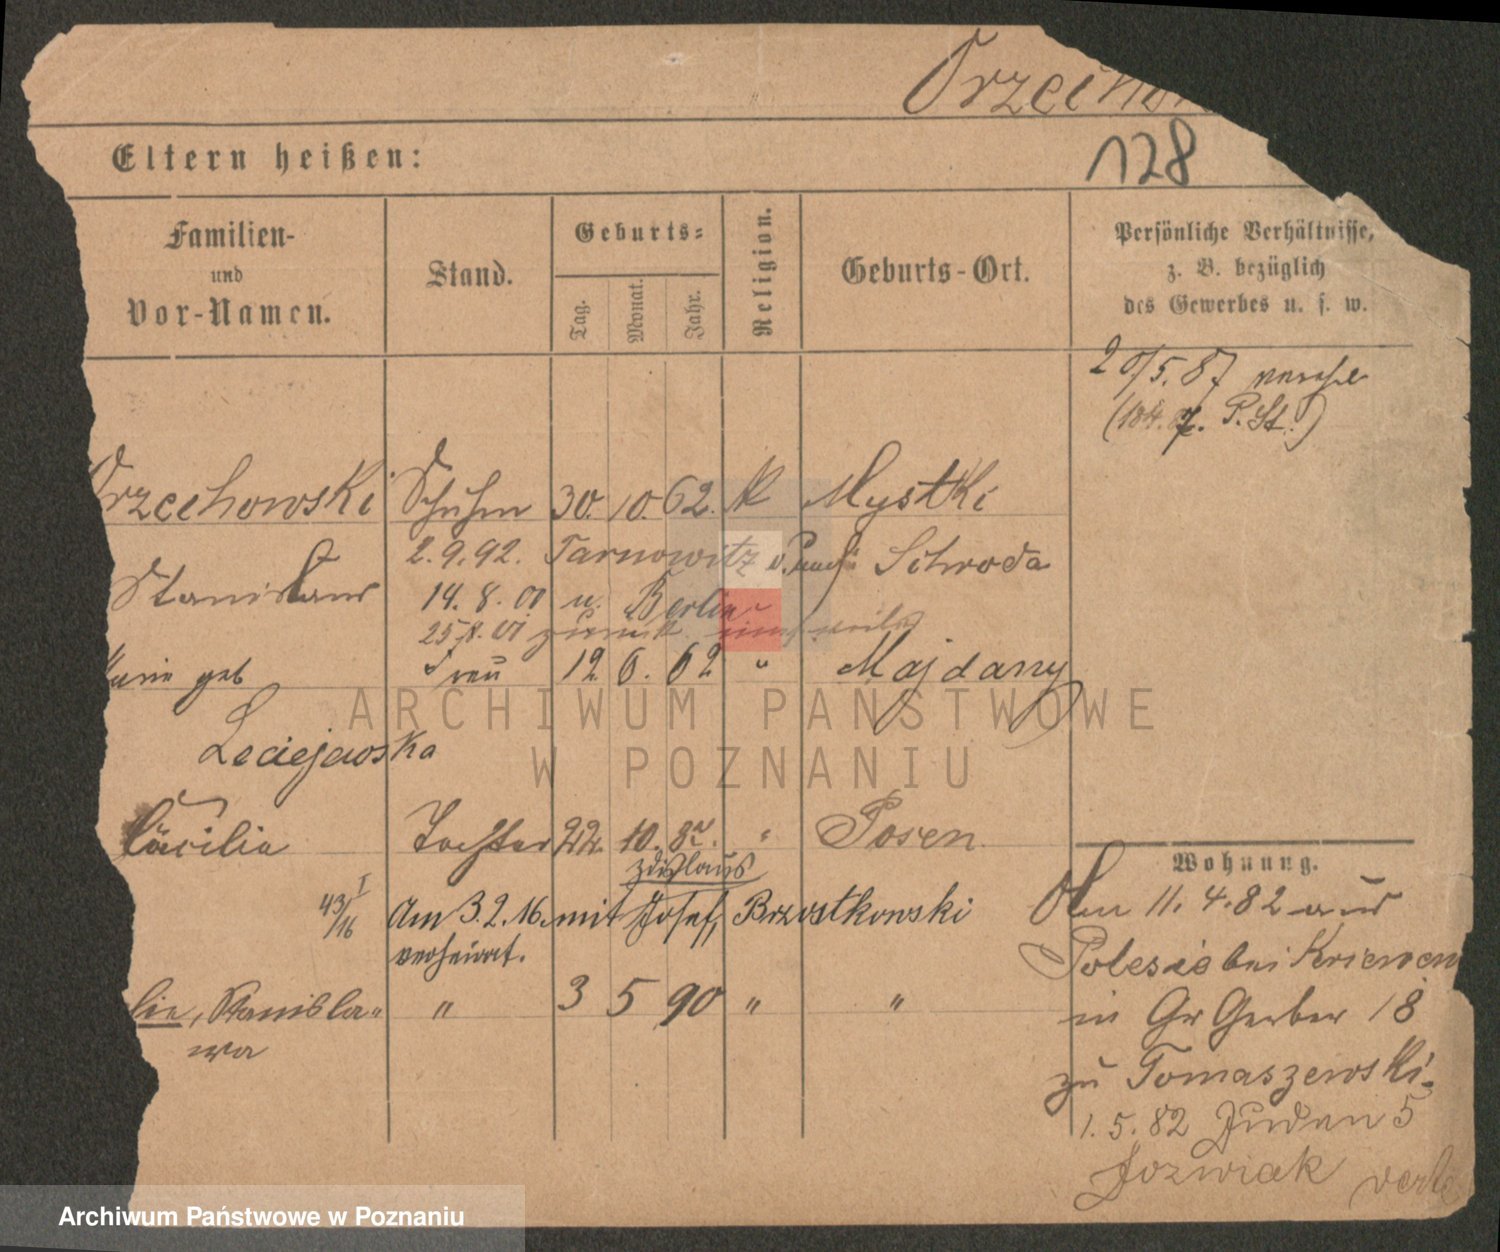 Trzecihow
128
Eltern heißen:
Familien-
und
Vor-Namen.
Stand.
Geburts=
Tag.
Monat.
Jahr.
Religion.
Geburts-Ort.
Persönliche Verhältnisse,
z. B. bezüglich
des Gewerbes u. s. w.
20/5.87
P. St.)
Trzechowski Schuhm 30. 10. 62. K Mystki
2.9.92. Tarnowitz Schroda
Stanislaus
14. 8. 01 u. Berlin
25.8.01 zurück
Marie geb Frau 12 6. 62 " Majdany
Leciejewska
Cäcilie Tochter 22. 10. " Posen.
Zdislaus
43/16 I Am 3.2.16. mit Josef, Brzostkowski
verheirat.
lie, Stanisla= " 3 5 90 " "
wa
Wohnung.
Am 11. 4. 82 aus
Polesie bei Kriewen
in Gr Gerber 18
zu Tomaszewski.
1. 5. 82 Juden 5
Jozwiak
ARCHIWUM PAŃSTWOWE
W POZNANIU
Archiwum Państwowe w Poznaniu